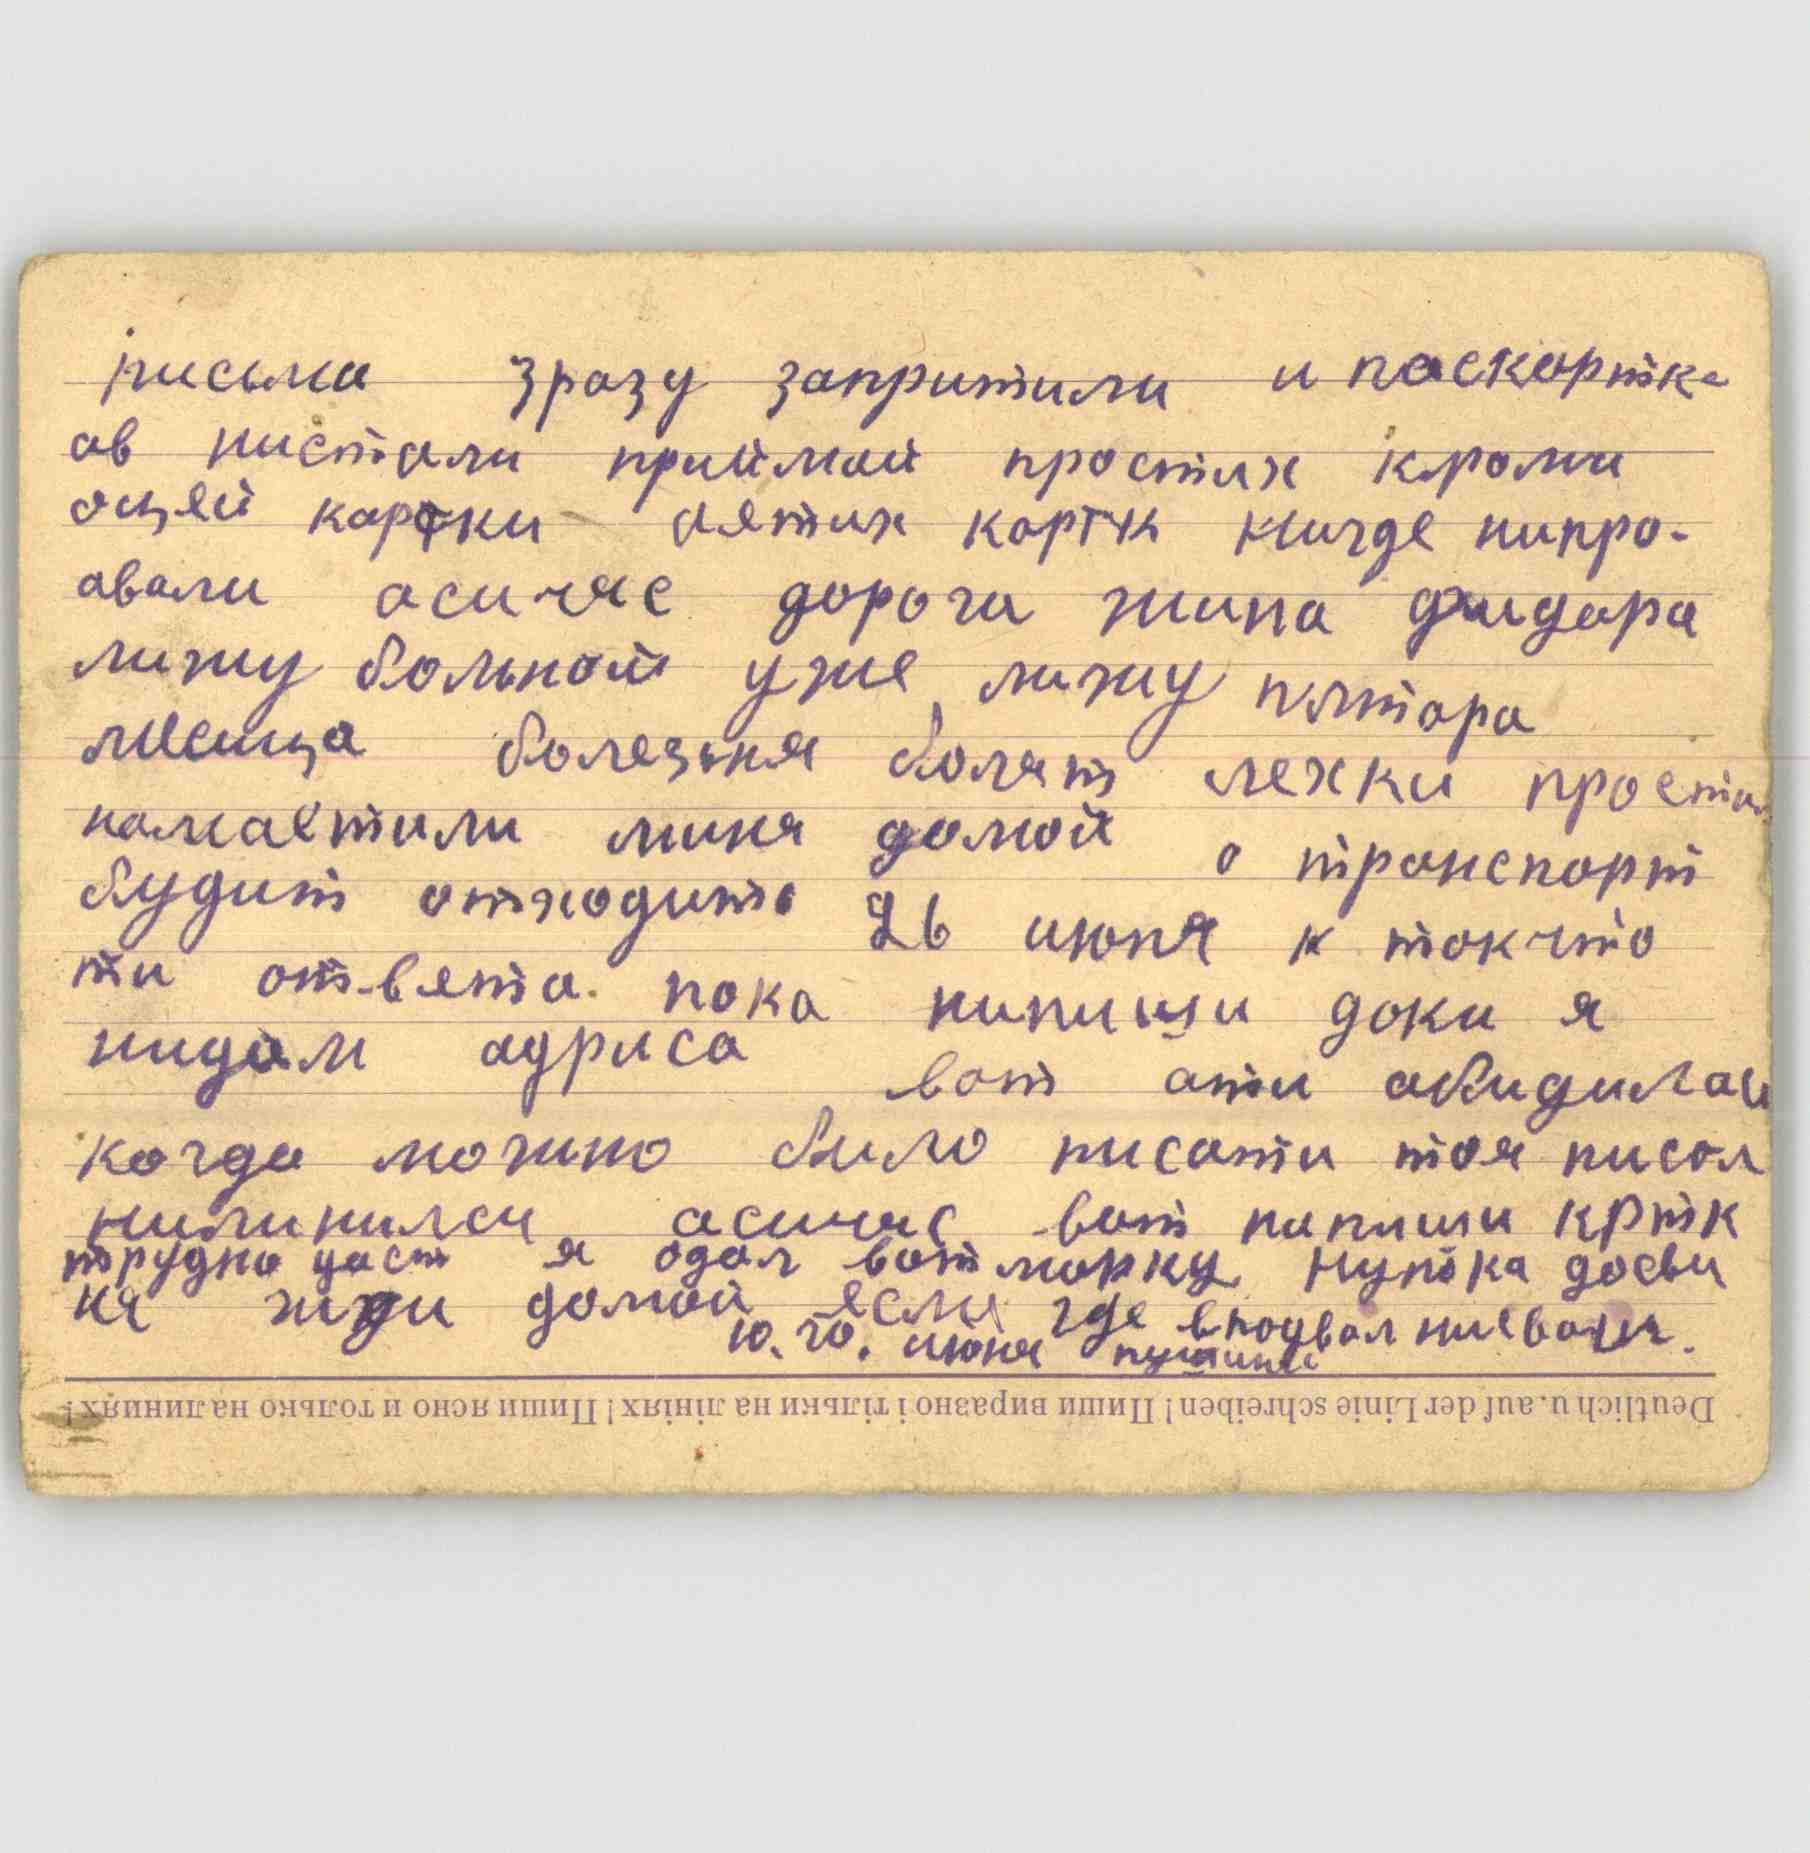 письма зразу запритили и паскартке
ов нистали приймай простих кроми
оцяй картки аетих карти нигде нипро-
авали асичяс дорога жина фидора
лижу больной уже лижу пятора
месица болезьня болят лехки проста
намаетили миня домой о транспорт
будит отходить 26 июня к такчто
ти отвята пока нипиши доки я
нидам адриса
вот ати абидилас
когда можно било писати тоя писал
ниминился асичас вот напиши
трудно уаст я одал вот марку нупока досви
ня жди домой если где вподвал
10. го. июня
Deutlich u. auf der Linie schreiben! Пиши виразно і тільки на лініях! Пиши ясно и только на линиях!